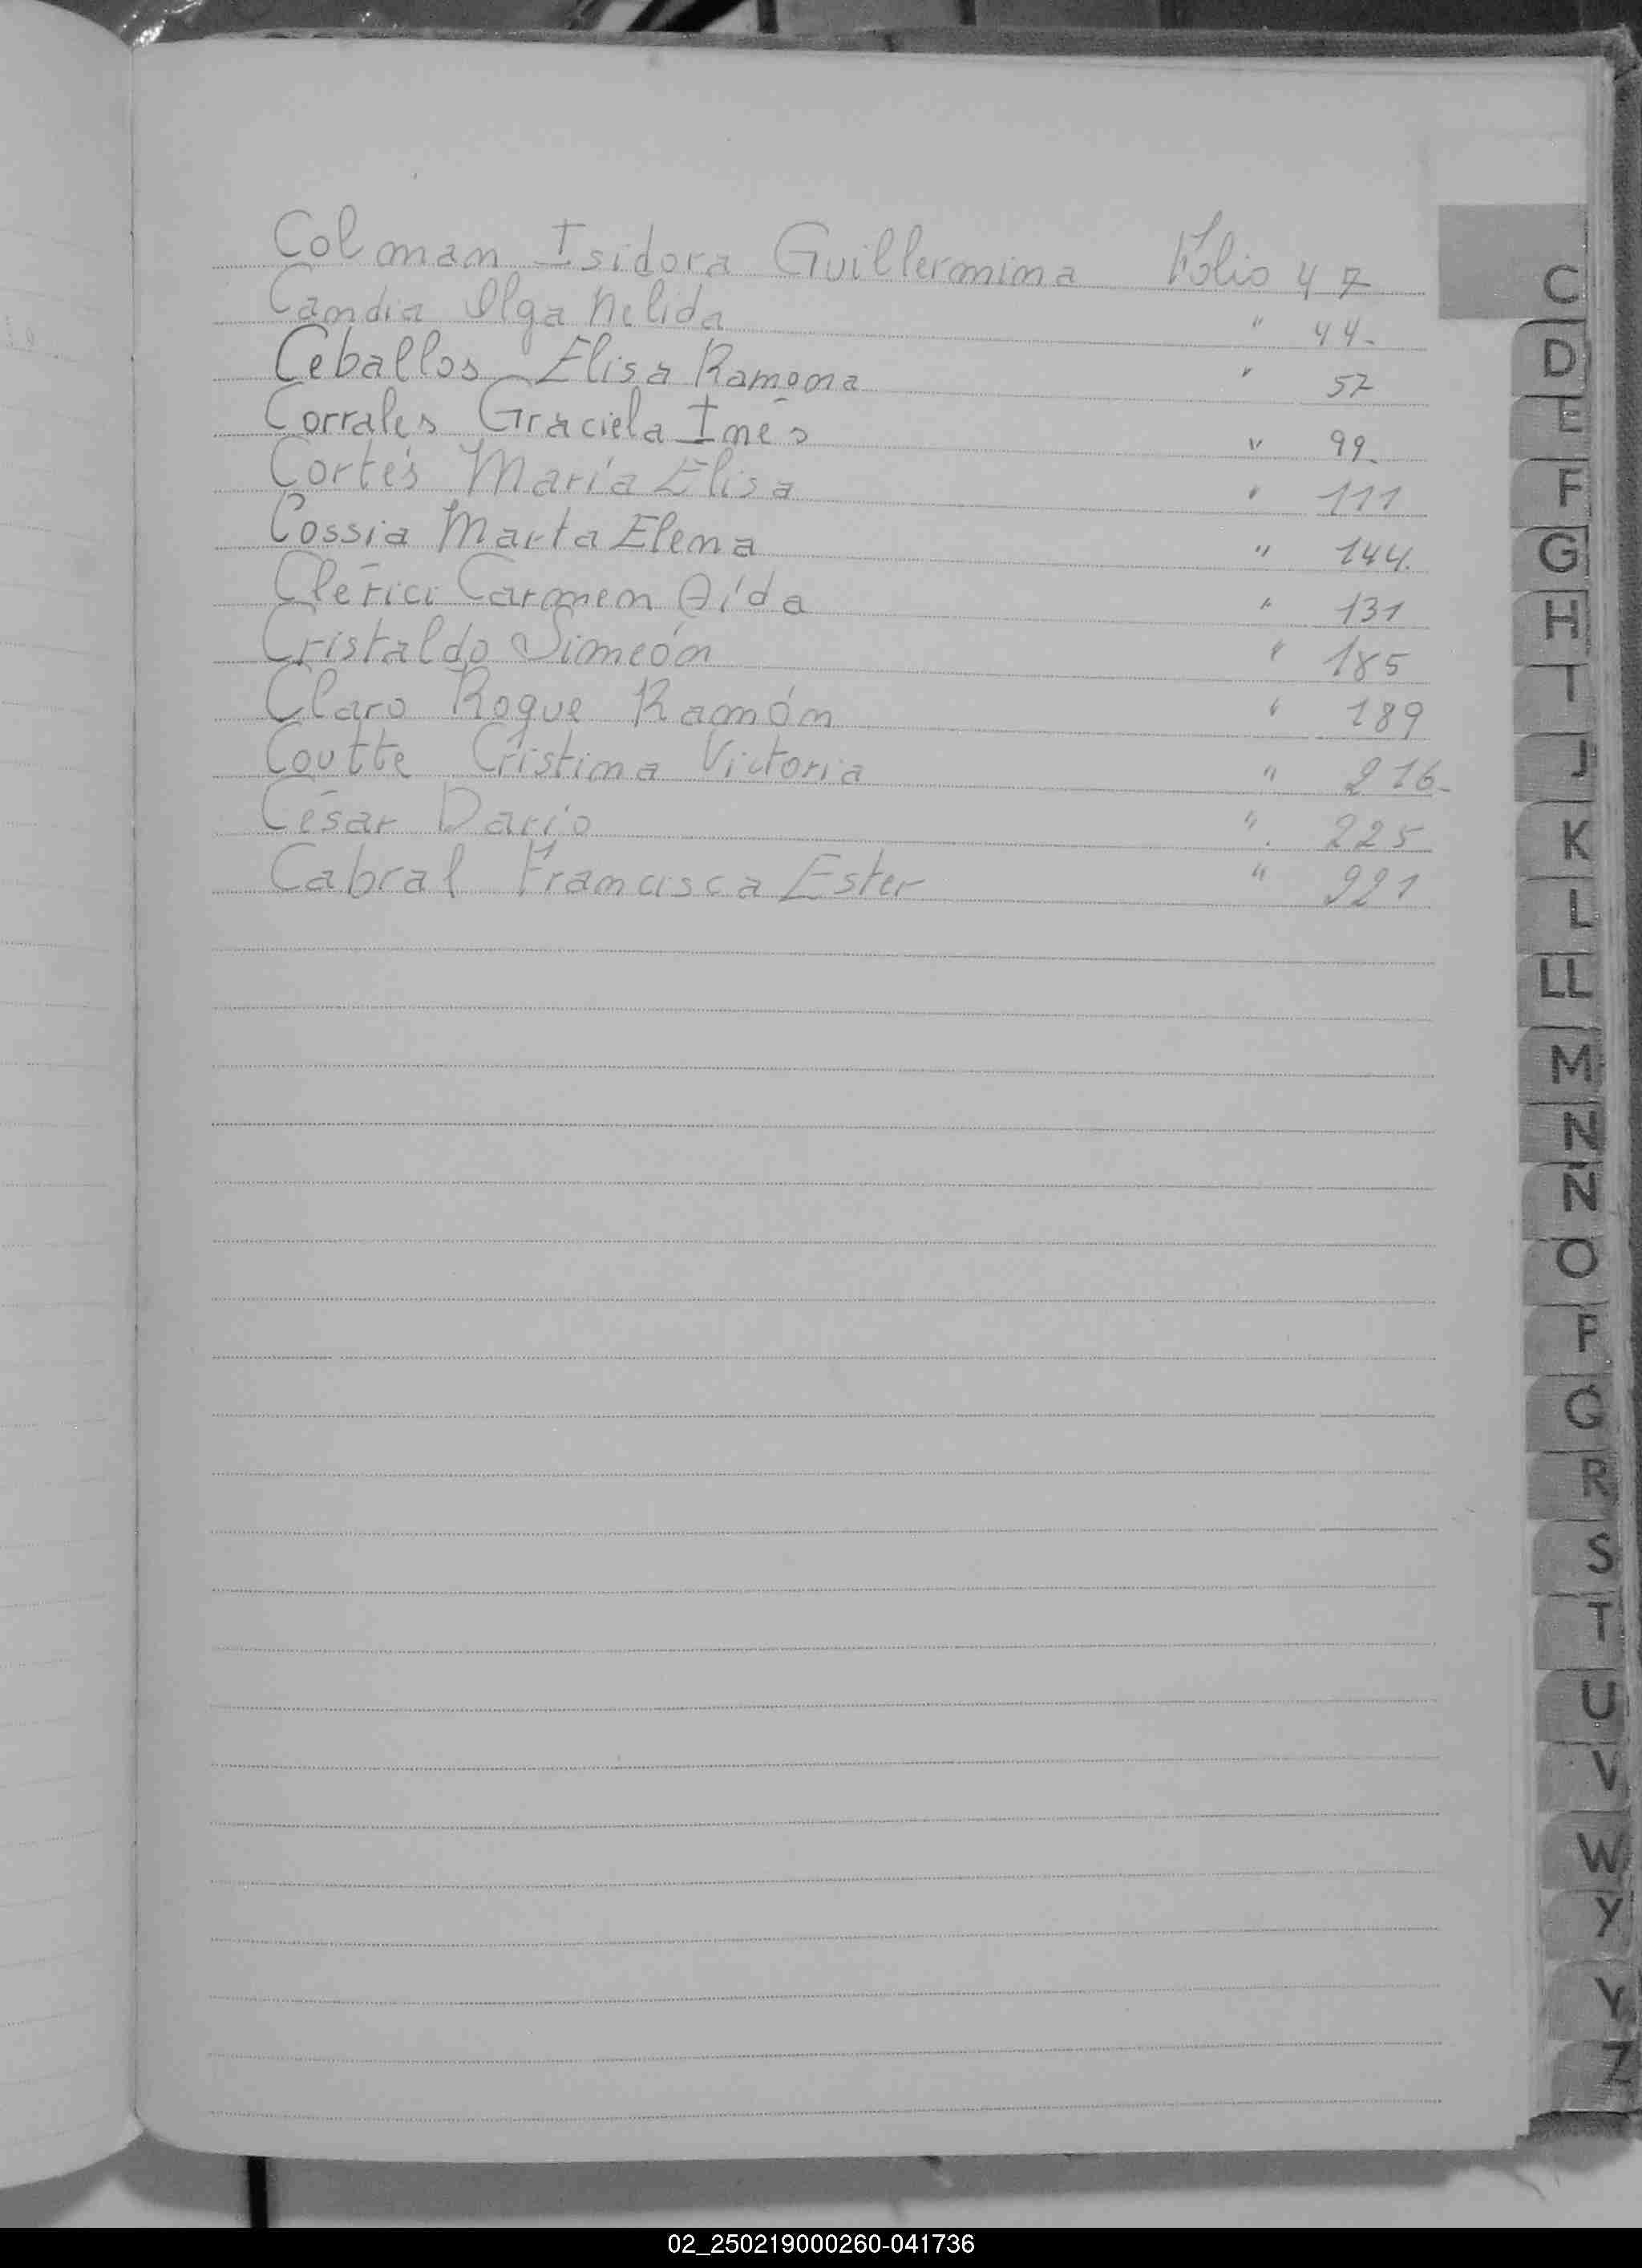 Colman Isidora Guillermina Folio 47
Candia Olga Nelida " 44-
Ceballos Elisa Ramona " 57
Corrales Graciela Inés " 99-
Cortés María Elisa " 111
Cossia Marta Elena " 144.
Clérici Carmen Aída " 131
Cristaldo Simeón " 185
Claro Roque Ramón " 189
Coutte Cristina Victoria " 216-
César Darío " 225
Cabral Francisca Ester " 221
C
D
E
F
G
H
I
J
K
L
LL
M
N
Ñ
O
P
Q
R
S
T
U
V
W
Y
Y
Z
02_250219000260-041736